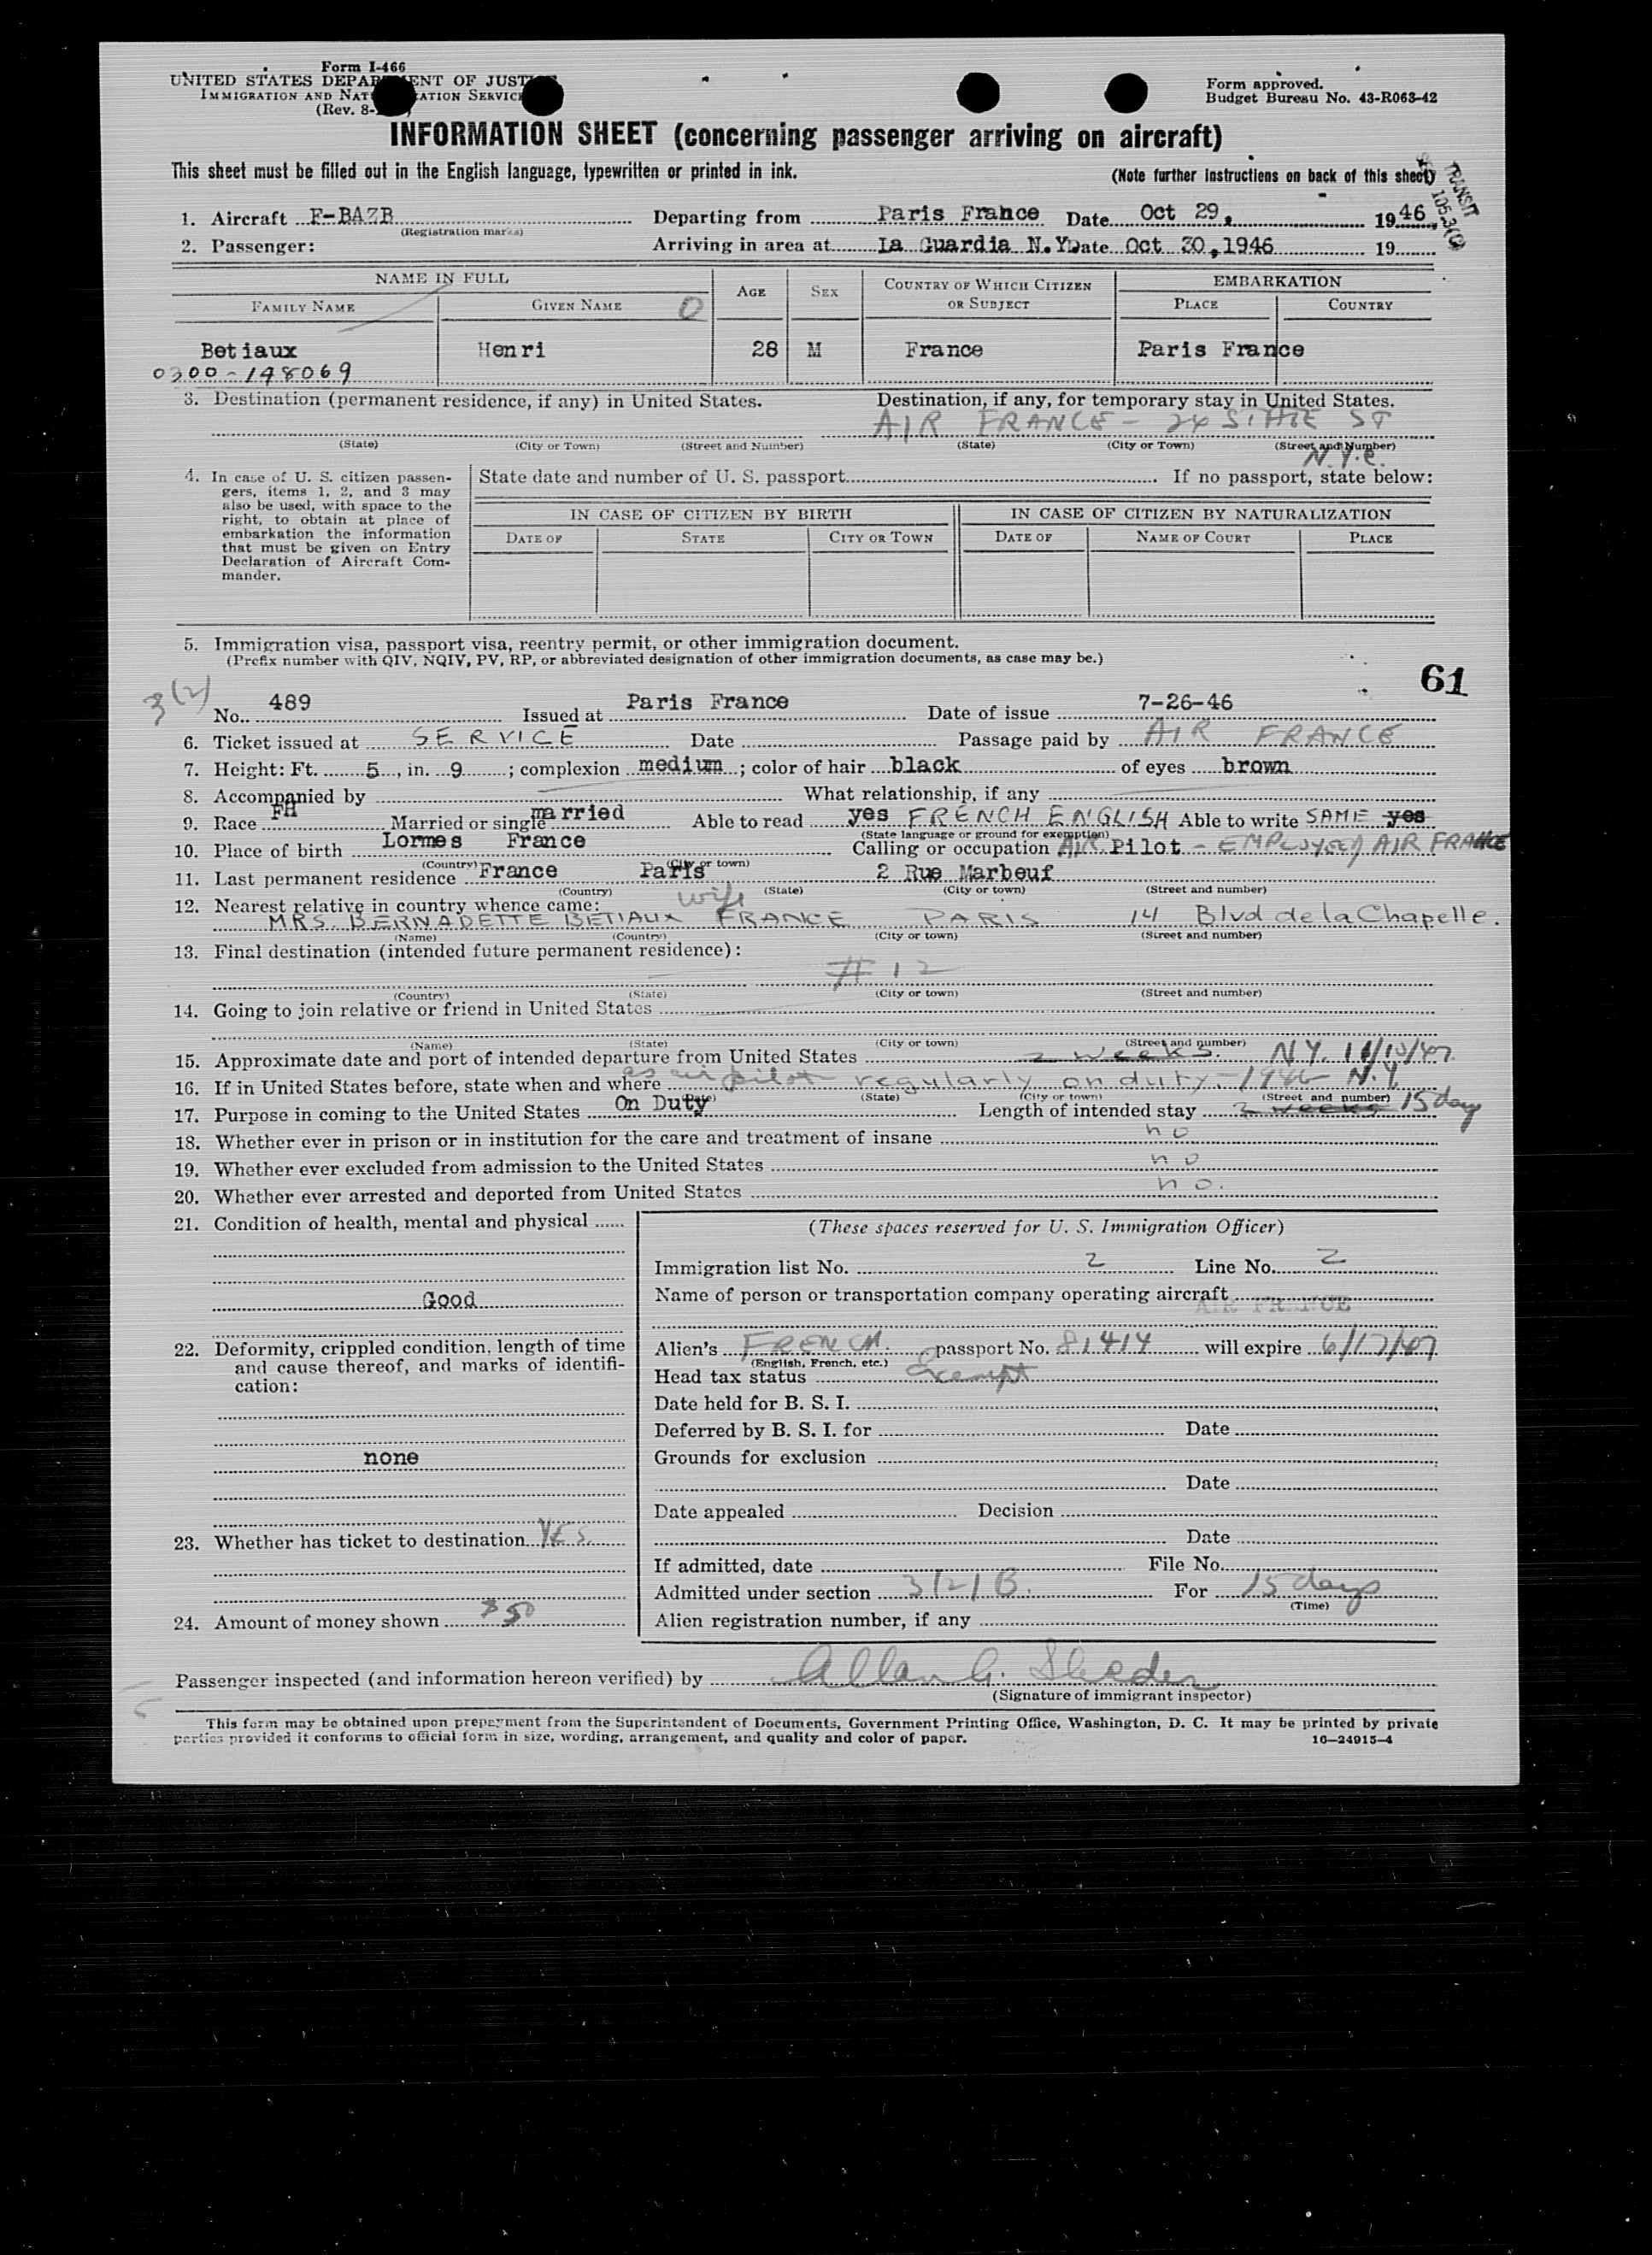 Form I-466
UNITED STATES DEPARTMENT OF JUSTICE
IMMIGRATION AND NATURALIZATION SERVICE
(Rev. 8-
Form approved.
Budget Bureau No. 43-R063-42
INFORMATION SHEET (concerning passenger arriving on aircraft)
This sheet must be filled out in the English language, typewritten or printed in ink. (Note further instructions on back of this sheet)
TRANSIT
1. Aircraft F-BAZB Departing from Paris France Date Oct 29, 1946
(Registration marks)
2. Passenger: Arriving in area at La Guardia N.Y. Date Oct 30,1946 19
NAME IN FULL AGE SEX COUNTRY OF WHICH CITIZEN OR SUBJECT EMBARKATION
FAMILY NAME GIVEN NAME 0 PLACE COUNTRY
Betiaux Henri 28 M France Paris France
0300-198069
3. Destination (permanent residence, if any) in United States. Destination, if any, for temporary stay in United States.
AIR FRANCE - 24 STATE ST
(State) (City or Town) (Street and Number) (State) (City or Town) (Street and Number)
N.Y.C.
4. In case of U. S. citizen passengers, items 1, 2, and 3 may also be used, with space to the right, to obtain at place of embarkation the information that must be given on Entry Declaration of Aircraft Commander.
State date and number of U. S. passport If no passport, state below:
IN CASE OF CITIZEN BY BIRTH IN CASE OF CITIZEN BY NATURALIZATION
DATE OF STATE CITY OR TOWN DATE OF NAME OF COURT PLACE
5. Immigration visa, passport visa, reentry permit, or other immigration document.
(Prefix number with QIV, NQIV, PV, RP, or abbreviated designation of other immigration documents, as case may be.)
61
3(2)
No. 489 Issued at Paris France Date of issue 7-26-46
6. Ticket issued at SERVICE Date Passage paid by AIR FRANCE
7. Height: Ft. 5, in. 9; complexion medium; color of hair black of eyes brown
8. Accompanied by What relationship, if any
9. Race FH Married or single married Able to read yes FRENCH ENGLISH Able to write SAME yes
(State language or ground for exemption)
10. Place of birth Lormes France Calling or occupation AIR Pilot - EMPLOYEE of AIR FRANCE
(Country) (City or town)
11. Last permanent residence France Paris 2 Rue Marbeuf
(Country) (State) (City or town) (Street and number)
12. Nearest relative in country whence came: wife
MRS. BERNADETTE BETIAUX FRANCE PARIS 14 Blvd de la Chapelle.
(Name) (Country) (City or town) (Street and number)
13. Final destination (intended future permanent residence):
#12
(Country) (State) (City or town) (Street and number)
14. Going to join relative or friend in United States
(Name) (State) (City or town) (Street and number)
15. Approximate date and port of intended departure from United States 2 weeks. N.Y.
16. If in United States before, state when and where as air pilot regularly on duty - 1946 N.Y.
(Date) (State) (City or town) (Street and number)
17. Purpose in coming to the United States On Duty Length of intended stay 2 weeks 15 days
18. Whether ever in prison or in institution for the care and treatment of insane no
19. Whether ever excluded from admission to the United States no
20. Whether ever arrested and deported from United States no.
21. Condition of health, mental and physical
Good
22. Deformity, crippled condition, length of time and cause thereof, and marks of identification:
none
23. Whether has ticket to destination YES.
24. Amount of money shown $50
(These spaces reserved for U. S. Immigration Officer)
Immigration list No. 2 Line No. 2
Name of person or transportation company operating aircraft
AIR FRANCE
Alien's FRENCH passport No. 81414 will expire 6/17/47
(English, French, etc.)
Head tax status Exempt
Date held for B. S. I.
Deferred by B. S. I. for Date
Grounds for exclusion
Date
Date appealed Decision
Date
If admitted, date File No.
Admitted under section 3(2)B. For 15 days
(Time)
Alien registration number, if any
Passenger inspected (and information hereon verified) by Allan G.
(Signature of immigrant inspector)
This form may be obtained upon prepayment from the Superintendent of Documents, Government Printing Office, Washington, D. C. It may be printed by private
parties provided it conforms to official form in size, wording, arrangement, and quality and color of paper. 16—24915-4